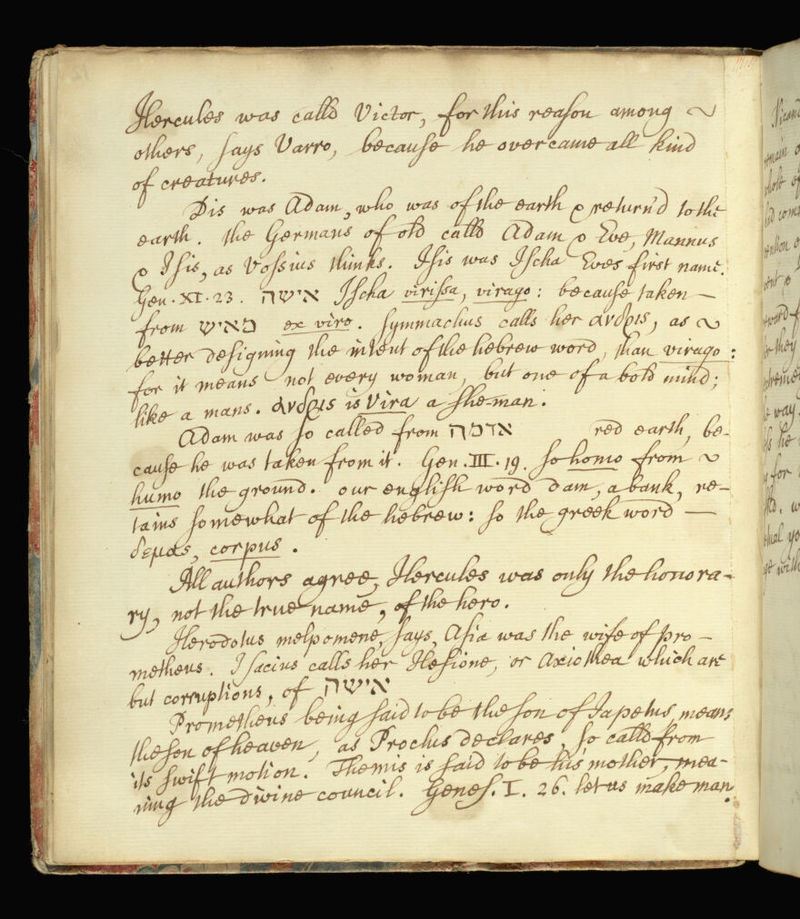 Hercules was calld Victor, for this reason among ~
others, says Varro, because he overcame all kind
of creatures.
Dis was Adam, who was of the earth & return'd to the
earth. the Germans of old calld Adam & Eve, Mannus
& Isis, as Vossius thinks. Isis was Ischa Eves first name.
Gen. XI. 23. אישה Ischa virissa, virago: because taken —
from מאיש ex viro. Symmachus calls her ανδρις, as ~
better designing the intent of the hebrew word, than virago:
for it means not every woman, but one of a bold mind;
like a mans. ανδρις is Vira a sheman.
Adam was so called from אדמה red earth, be-
cause he was taken from it. Gen. III. 19. so homo from ~
humo the ground. our english word dam, a bank, re-
tains somewhat of the hebrew: so the greek word —
δεμας, corpus.
All authors agree, Hercules was only the honora-
ry, not the true name, of the hero.
Herodotus melpomene, says, Asia was the wife of pro-
metheus. Isacius calls her Hesione, or Axiothea which are
but corruptions, of אישה
Prometheus being said to be the son of Iapetus, means
the son of heaven, as Proclus declares, so calld from
its swift motion. Themis is said to be his mother, mea-
ning the divine council. Genes. I. 26. let us make man